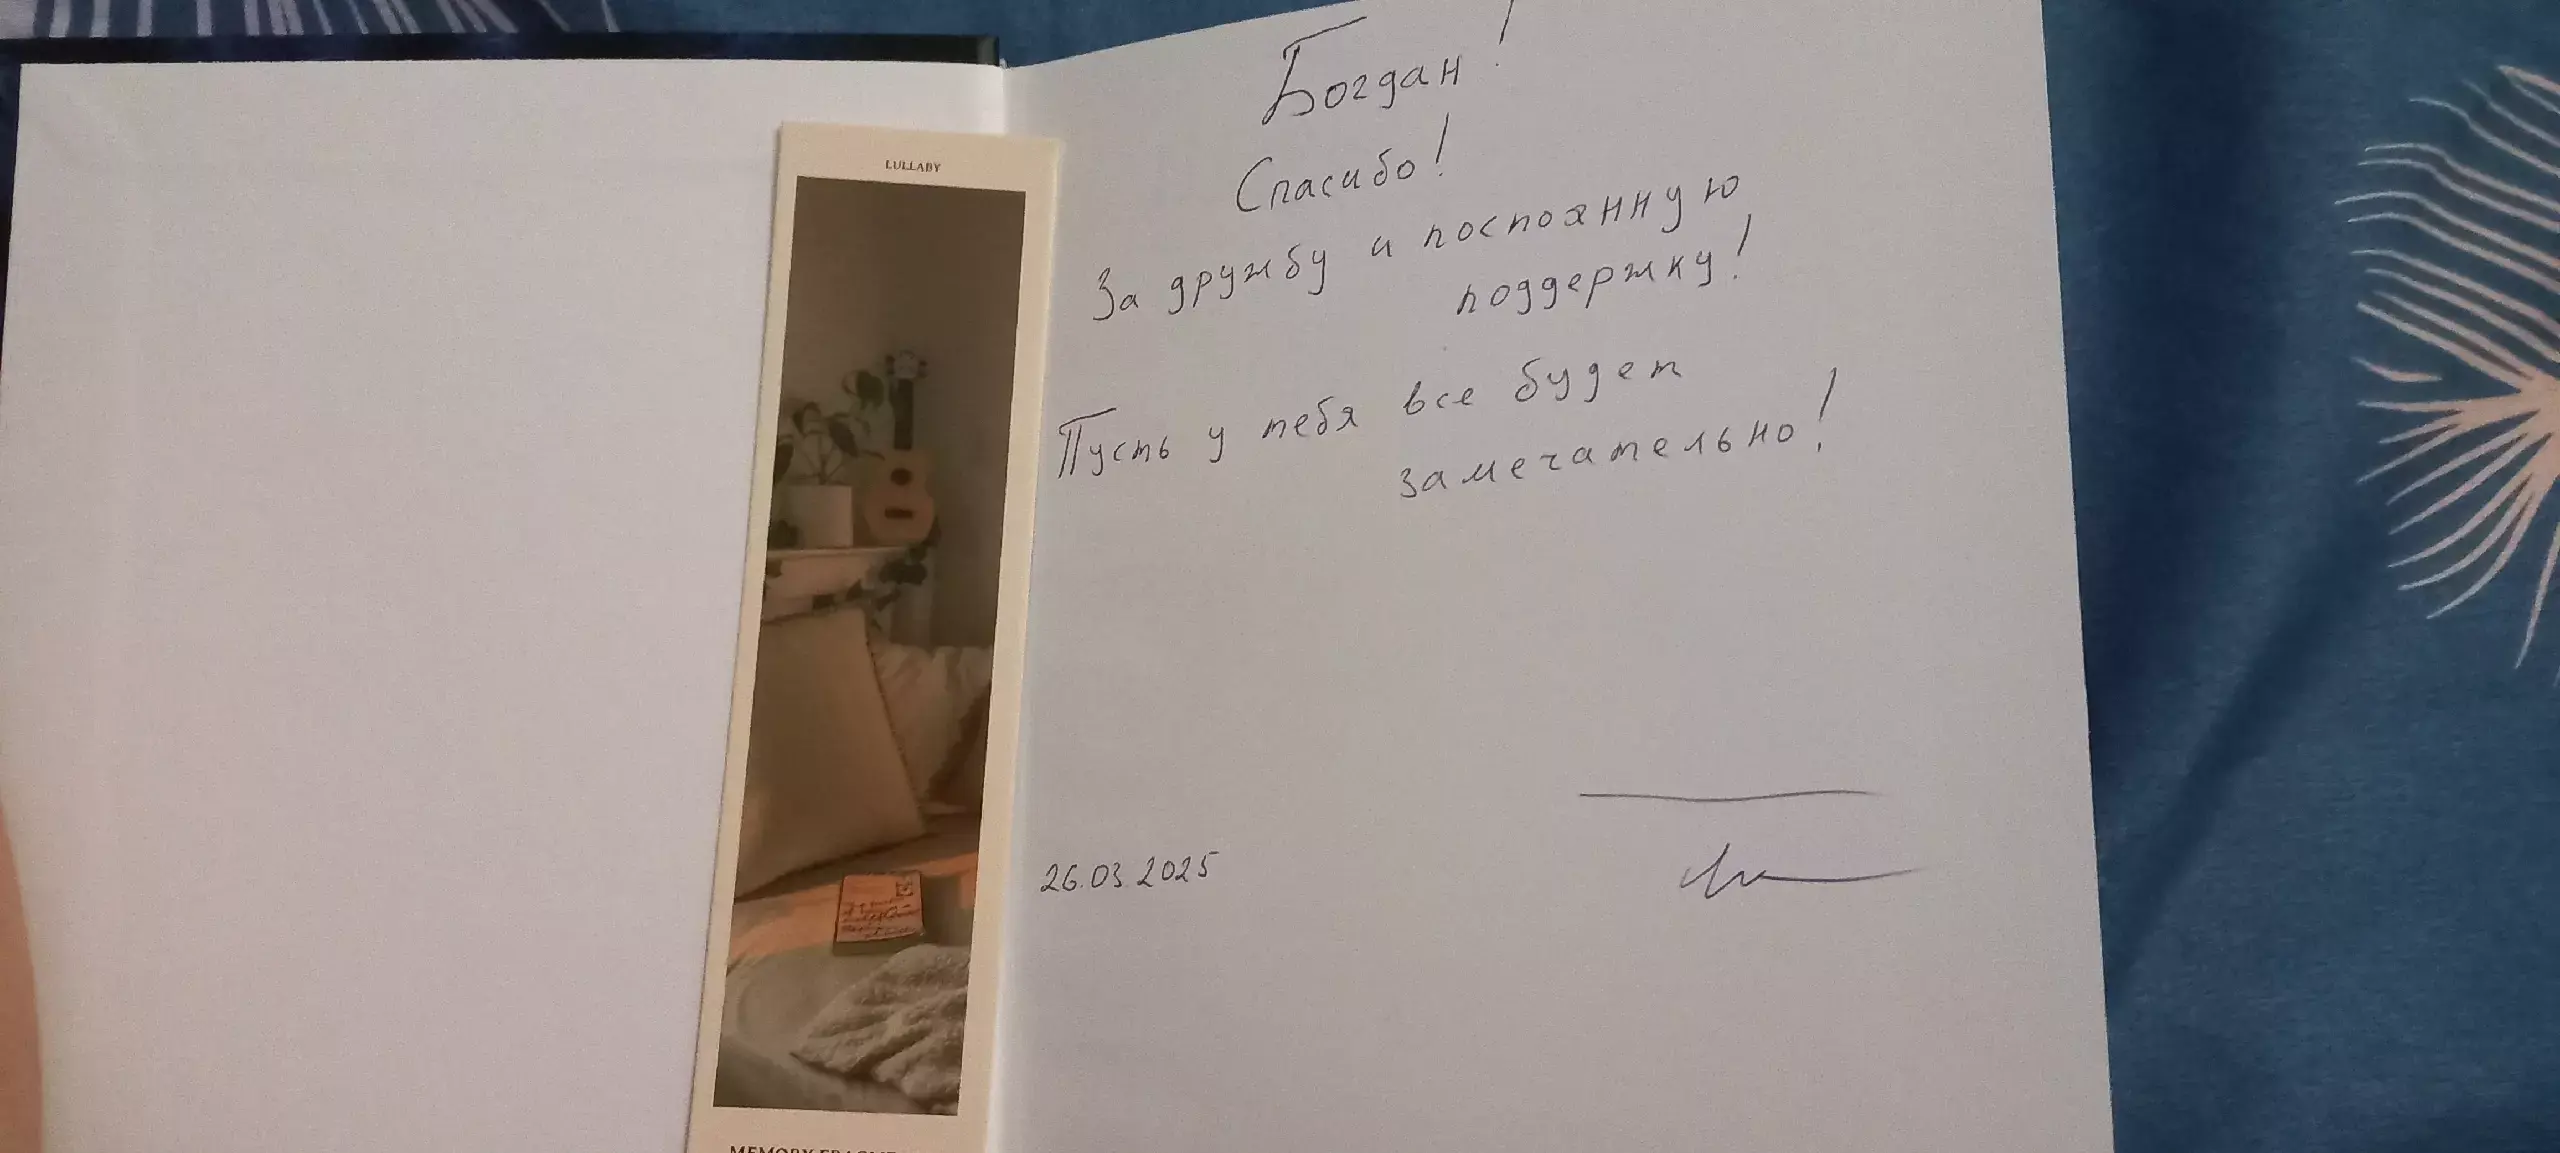 LULLABY
Богдан!
Спасибо!
За дружбу и постоянную
поддержку!
Пусть у тебя все будет
замечательно!
26.03.2025
MEMORY